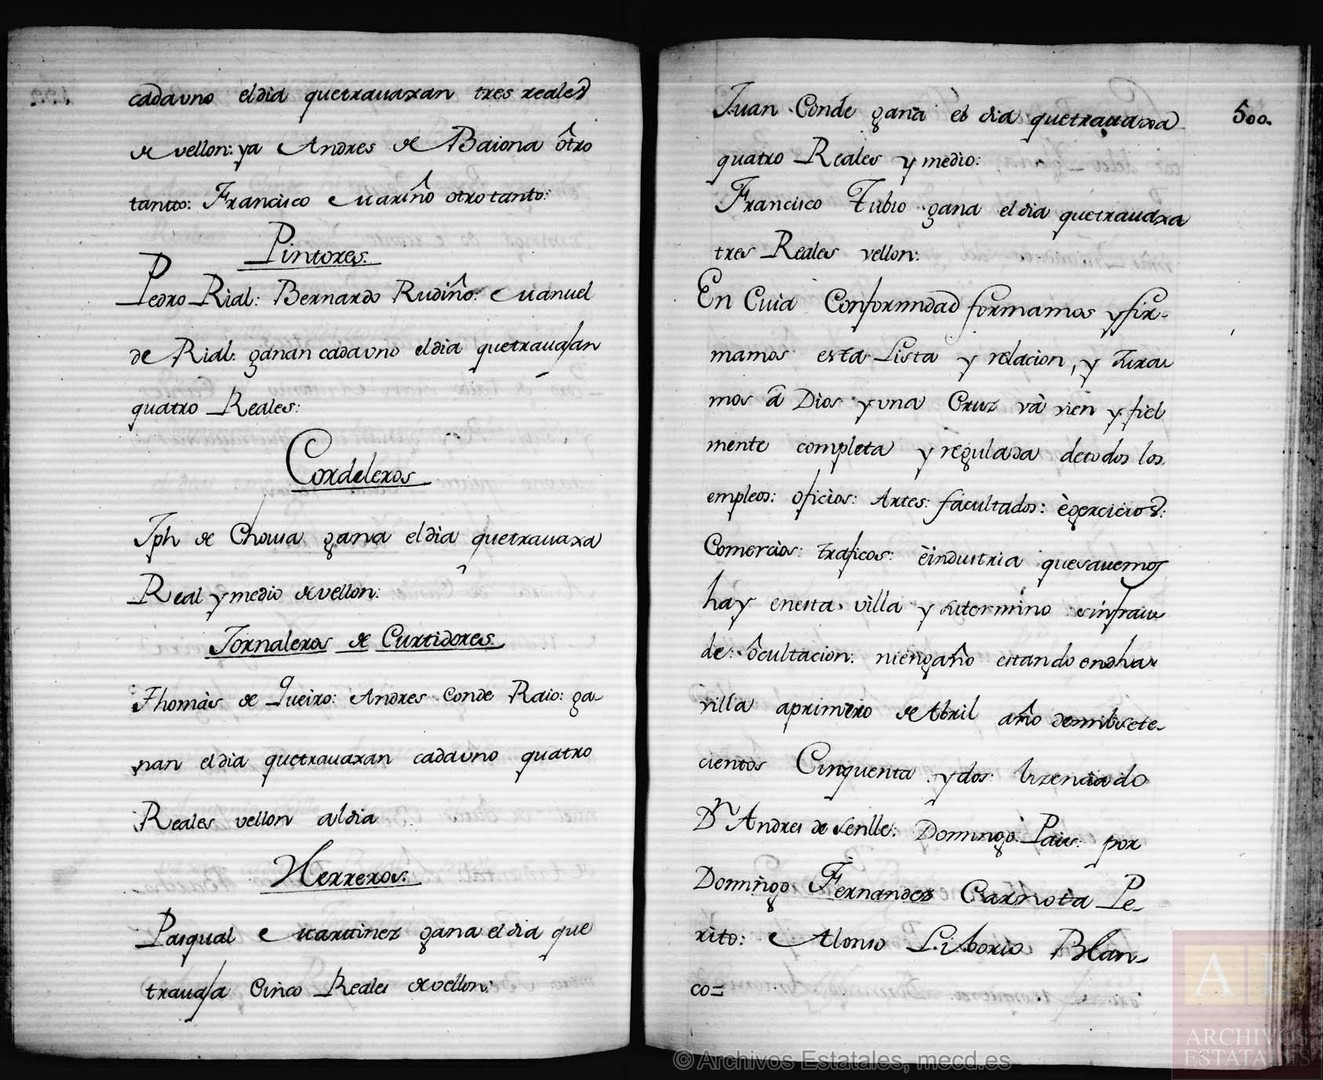 cadauno eldia quetrauaxan tres reales
de vellon: ya Andres de Baiona otro
tantto: Francisco Mariño otro tanto:
Pintores.
Pedro Rial: Bernardo Rudiño: Manuel
de Rial: ganan cadauno eldia quetrauajan
quatro Reales:
Cordeleros
Jph de Chouia gana eldia quetrauaxa
Real y medio de vellon:
Jornaleros de Curtidores.
Thomàs de Queiro: Andres Conde Raio: ga-
nan eldia quetrauaxan cadauno quatro
Reales vellon aldia
Herreros.
Pasqual Martinez gana el dia que
trauaja Cinco Reales de vellon:
500.
Juan Conde gana el dia quetrauaxa
quatro Reales y medio:
Francisco Tubio gana el dia quetrauaxa
tres Reales vellon:
En Cuia Conformidad formamos y fir-
mamos esta Lista y relacion, y Jura
mos â Dios y una Cruz và vien y fiel
mente completa y regulada detodos los
empleos: oficios: Artes: facultados: exercicios:
Comercios: traficos: è industria quesauemos
hay enesta villa y su termino sinfrau
de: ocultacion: niengaño estando endha
villa aprimero de Abril año demilsete-
cientos Cinquenta y dos lizenciado
Dn Andres de Senlle: Domingo Pais: por
Domingo Fernandez Carnota Pe-
rito: Alonso Liborio Blan-
co=
© Archivos Estatales, mecd.es
AE
ARCHIVOS
ESTATALES